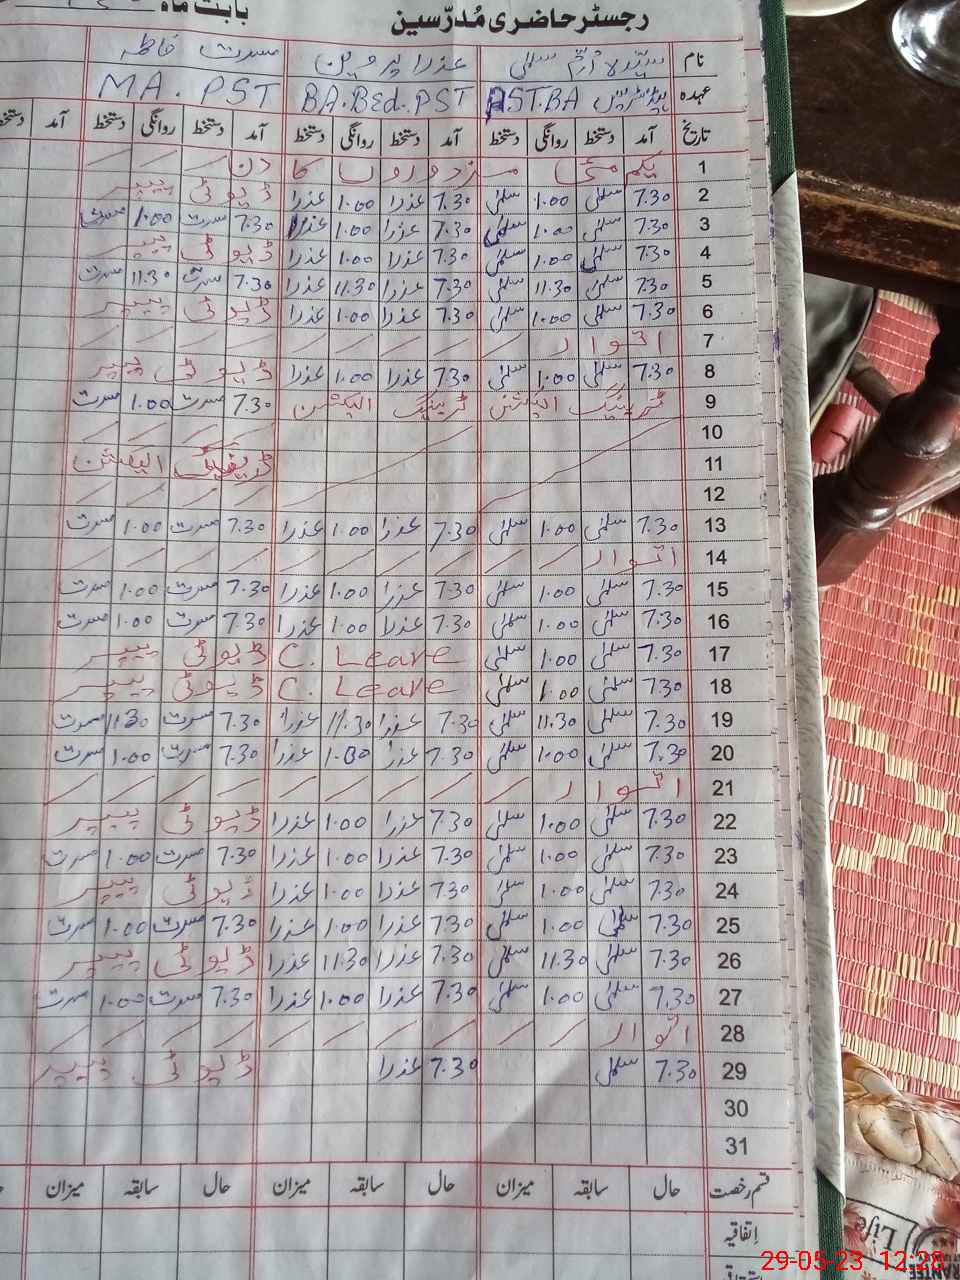 رجسٹر حاضری مُدرّسین بابت ماہ
نام سیدہ ام سلمیٰ عذرا پروین مسرت فاطمہ
عہدہ PST.BA BA.BEd.PST MA.PST
تاریخ آمد دستخط روانگی دستخط آمد دستخط روانگی دستخط آمد دستخط روانگی دستخط آمد
1 یکم مئی مزدوروں کا دن
2 7.30 سلمیٰ 1.00 سلمیٰ 7.30 عذرا 1.00 عذرا ڈیوٹی پیپر
3 7.30 سلمیٰ 1.00 سلمیٰ 7.30 عذرا 1.00 عذرا 7.30 مسرت 1.00 مسرت
4 7.30 سلمیٰ 1.00 سلمیٰ 7.30 عذرا 1.00 عذرا ڈیوٹی پیپر
5 7.30 سلمیٰ 11.30 سلمیٰ 7.30 عذرا 11.30 عذرا 7.30 مسرت 11.30 مسرت
6 7.30 سلمیٰ 1.00 سلمیٰ 7.30 عذرا 1.00 عذرا ڈیوٹی پیپر
7 اتوار
8 7.30 سلمیٰ 1.00 سلمیٰ 7.30 عذرا 1.00 عذرا ڈیوٹی پیپر
9 ٹریننگ الیکشن ٹریننگ الیکشن 7.30 مسرت 1.00 مسرت
10
11 ٹریننگ الیکشن
12
13 7.30 سلمیٰ 1.00 سلمیٰ 7.30 عذرا 1.00 عذرا 7.30 مسرت 1.00 مسرت
14 اتوار
15 7.30 سلمیٰ 1.00 سلمیٰ 7.30 عذرا 1.00 عذرا 7.30 مسرت 1.00 مسرت
16 7.30 سلمیٰ 1.00 سلمیٰ 7.30 عذرا 1.00 عذرا 7.30 مسرت 1.00 مسرت
17 7.30 سلمیٰ 1.00 سلمیٰ C. Leave ڈیوٹی پیپر
18 7.30 سلمیٰ 1.00 سلمیٰ C. Leave ڈیوٹی پیپر
19 7.30 سلمیٰ 11.30 سلمیٰ 7.30 عذرا 11.30 عذرا 7.30 مسرت 11.30 مسرت
20 7.30 سلمیٰ 1.00 سلمیٰ 7.30 عذرا 1.00 عذرا 7.30 مسرت 1.00 مسرت
21 اتوار
22 7.30 سلمیٰ 1.00 سلمیٰ 7.30 عذرا 1.00 عذرا ڈیوٹی پیپر
23 7.30 سلمیٰ 1.00 سلمیٰ 7.30 عذرا 1.00 عذرا 7.30 مسرت 1.00 مسرت
24 7.30 سلمیٰ 1.00 سلمیٰ 7.30 عذرا 1.00 عذرا ڈیوٹی پیپر
25 7.30 سلمیٰ 1.00 سلمیٰ 7.30 عذرا 1.00 عذرا 7.30 مسرت 1.00 مسرت
26 7.30 سلمیٰ 11.30 سلمیٰ 7.30 عذرا 11.30 عذرا ڈیوٹی پیپر
27 7.30 سلمیٰ 1.00 سلمیٰ 7.30 عذرا 1.00 عذرا 7.30 مسرت 1.00 مسرت
28 اتوار
29 7.30 سلمیٰ 7.30 عذرا ڈیوٹی پیپر
30
31
قسم رخصت حال سابقہ میزان حال سابقہ میزان حال سابقہ میزان
اتفاقیہ
Life
29-05-23 12:28